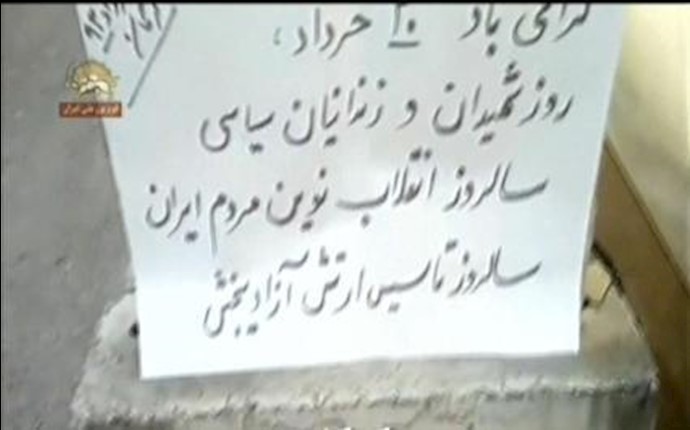 گرامی باد ۳۰ خرداد،
روز شهیدان و زندانیان سیاسی
سالروز انقلاب نوین مردم ایران
سالروز تاسیس ارتش آزادیبخش